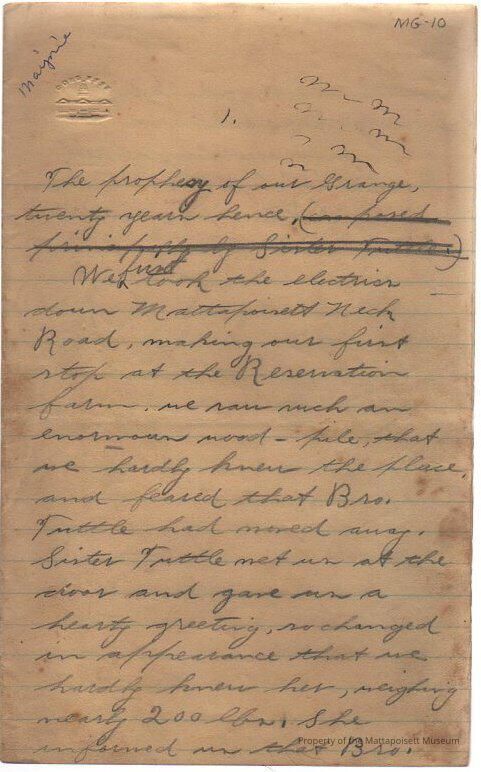 MG-10
Marjorie
1.
The prophecy of our Grange,
twenty years hence, (composed
principally by Sister Tuttle.)
We first took the electrics
down Mattapoisett Neck
Road, making our first
stop at the Reservation
farm. we saw such an
enormous wood-pile, that
we hardly knew the place,
and feared that Bro.
Tuttle had moved away.
Sister Tuttle met us at the
door and gave us a
hearty greeting, so changed
in appearance that we
hardly knew her, weighing
nearly 200 lbs. She
informed us that Bro.
Property of the Mattapoisett Museum